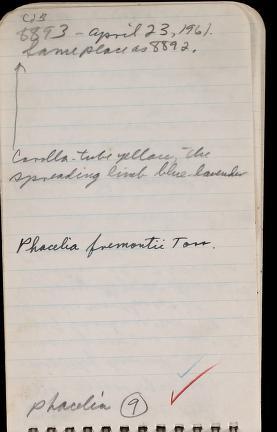 CJB
8893 - April 23, 1961.
Same place as 8892.
Corolla-tube yellow, the
spreading limb blue-lavender
Phacelia fremontii Torr.
phacelia 9